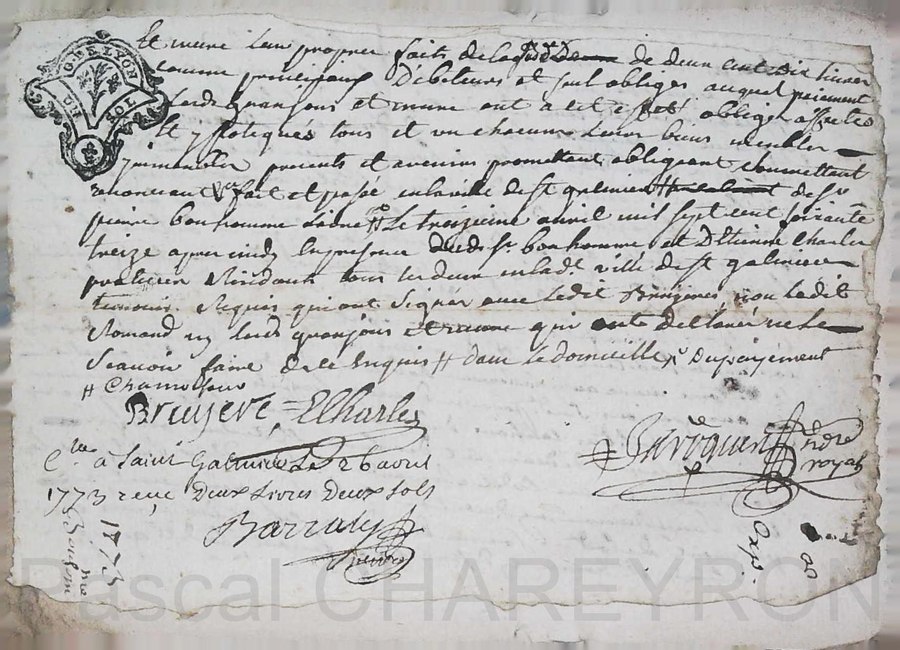 G. DE LYON
UN SOL
Et meme leur propre faits de la de deux cent dix livres
comme principaux Debiteurs et seul obliges auquel paiement
Lesds Granjons et ont a cet effet obligé affectés
Et ypotequés tous et un chacuns Leurs biens meubles
ymmeubles presents et avenirs promettant obligeant soumettant
renonceant &a fait et passé en la ville de St galmier de Sr
pierre bonhomme Le treizieme avril mil sept cent soixante
treize apres midy En presence dud Sr bonhomme et D Etienne Charles
praticien Residants tous les deux en lad. ville de St galmier
temoins Requis qui ont signés avec Ledit Bruyere, non Ledit
Romand ny lesds granjons qui ont declaré ne le
Scavoir faire de ce Enquis # dans Le domicille du payement
#
Bruyere = ECharles
Barroquen ndre royal
C.lle à Saint Galmier Le 26 avril
1773 reçu Deux Livres Deux sols
Barrály
1773
Exp.
Pascal CHAREYRON